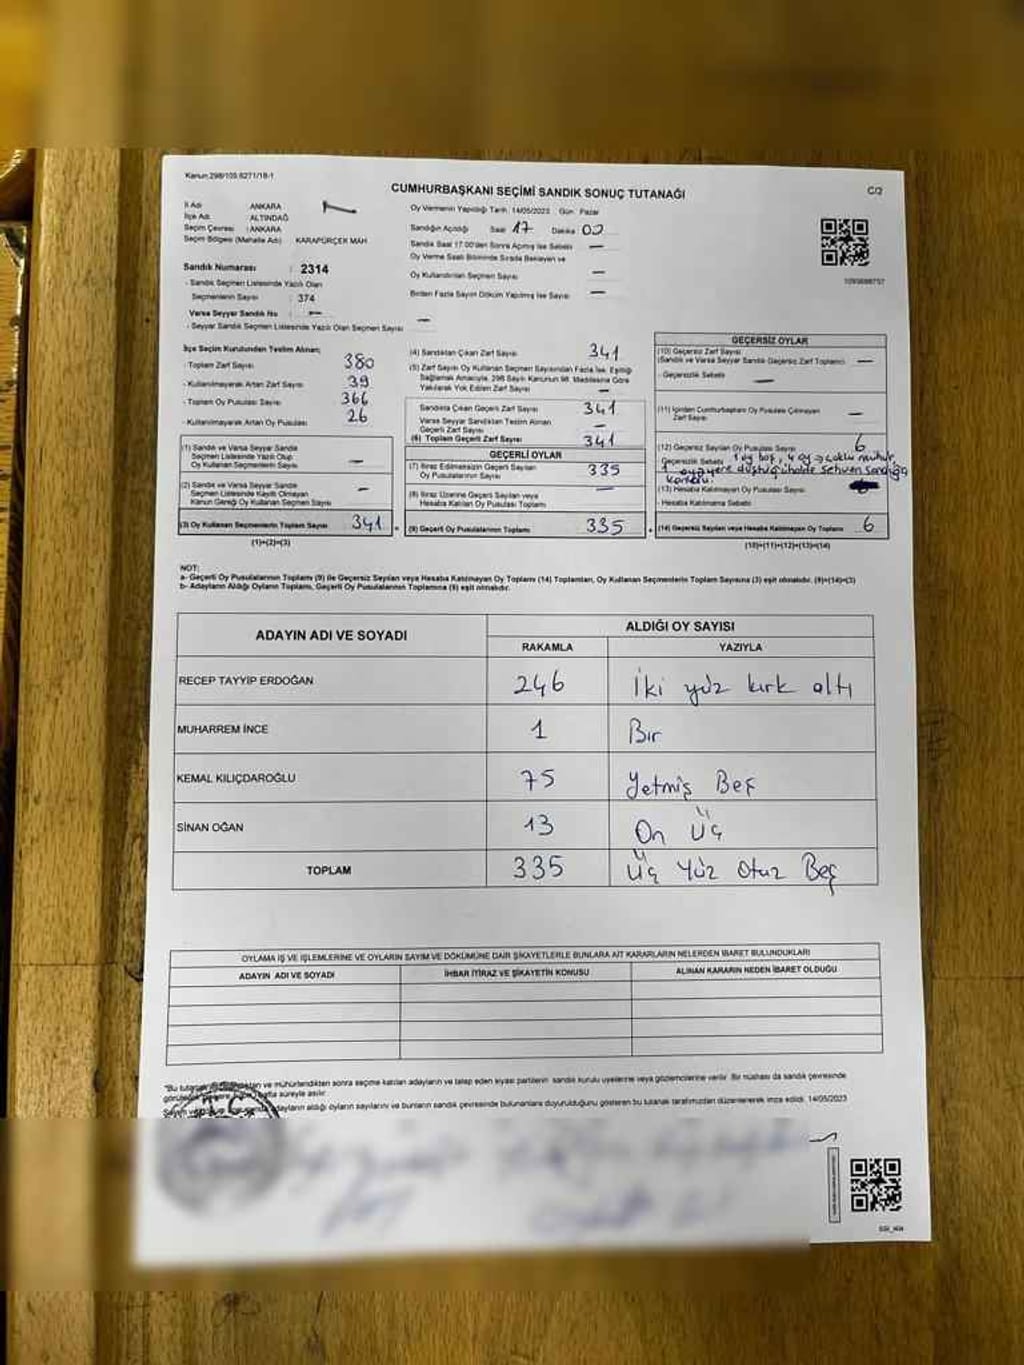 Kanun:298/105.6271/18-1
CUMHURBAŞKANI SEÇİMİ SANDIK SONUÇ TUTANAĞI
C/2
İl Adı ANKARA
İlçe Adı ALTINDAĞ
Seçim Çevresi : ANKARA
Seçim Bölgesi (Mahalle Adı) KARAPÜRÇEK MAH
Sandık Numarası : 2314
- Sandık Seçmen Listesinde Yazılı Olan
Seçmenlerin Sayısı : 374
Varsa Seyyar Sandık No : —
- Seyyar Sandık Seçmen Listesinde Yazılı Olan Seçmen Sayısı —
Oy Vermenin Yapıldığı Tarih: 14/05/2023 Gün: Pazar
Sandığın Açıldığı Saat 17 Dakika 00
Sandık Saat 17.00'den Sonra Açılmış İse Sebebi —
Oy Verme Saati Bitiminde Sırada Bekleyen ve
Oy Kullandırılan Seçmen Sayısı —
Birden Fazla Sayım Döküm Yapılmış İse Sayısı —
İlçe Seçim Kurulundan Teslim Alınan;
- Toplam Zarf Sayısı 380
- Kullanılmayarak Artan Zarf Sayısı 39
- Toplam Oy Pusulası Sayısı 366
- Kullanılmayarak Artan Oy Pusulası 26
(1) Sandık ve Varsa Seyyar Sandık
Seçmen Listesinde Yazılı Olup
Oy Kullanan Seçmenlerin Sayısı —
(2) Sandık ve Varsa Seyyar Sandık
Seçmen Listesinde Kayıtlı Olmayan
Kanun Gereği Oy Kullanan Seçmen Sayısı —
(3) Oy Kullanan Seçmenlerin Toplam Sayısı 341
(1)+(2)=(3)
(4) Sandıktan Çıkan Zarf Sayısı 341
(5) Zarf Sayısı Oy Kullanan Seçmen Sayısından Fazla İse, Eşitliği
Sağlamak Amacıyla, 298 Sayılı Kanunun 98. Maddesine Göre
Yakılarak Yok Edilen Zarf Sayısı —
Sandıkta Çıkan Geçerli Zarf Sayısı 341
Varsa Seyyar Sandıktan Teslim Alınan
Geçerli Zarf Sayısı —
(6) Toplam Geçerli Zarf Sayısı 341
GEÇERLİ OYLAR
(7) İtiraz Edilmeksizin Geçerli Sayılan
Oy Pusulalarının Sayısı 335
(8) İtiraz Üzerine Geçerli Sayılan veya
Hesaba Katılan Oy Pusulası Toplamı —
(9) Geçerli Oy Pusulalarının Toplamı 335
GEÇERSİZ OYLAR
(10) Geçersiz Zarf Sayısı
(Sandık ve Varsa Seyyar Sandık Geçersiz Zarf Toplamı) —
- Geçersizlik Sebebi —
(11) İçinden Cumhurbaşkanı Oy Pusulası Çıkmayan
Zarf Sayısı —
(12) Geçersiz Sayılan Oy Pusulası Sayısı 6
Geçersizlik Sebebi 1 oy boş, 4 oy çoklu mühür,
1 oy yere düştüğü halde sehven sandığa
(13) Hesaba Katılmayan Oy Pusulası Sayısı
- Hesaba Katılmama Sebebi
(14) Geçersiz Sayılan veya Hesaba Katılmayan Oy Toplamı 6
(10)+(11)+(12)+(13)=(14)
NOT:
a- Geçerli Oy Pusulalarının Toplamı (9) ile Geçersiz Sayılan veya Hesaba Katılmayan Oy Toplamı (14) Toplamları, Oy Kullanan Seçmenlerin Toplam Sayısına (3) eşit olmalıdır. (9)+(14)=(3)
b- Adayların Aldığı Oyların Toplamı, Geçerli Oy Pusulalarının Toplamına (9) eşit olmalıdır.
ADAYIN ADI VE SOYADI ALDIĞI OY SAYISI
RAKAMLA YAZIYLA
RECEP TAYYİP ERDOĞAN 246 İki yüz kırk altı
MUHARREM İNCE 1 Bir
KEMAL KILIÇDAROĞLU 75 Yetmiş Beş
SİNAN OĞAN 13 On Üç
TOPLAM 335 Üç Yüz Otuz Beş
OYLAMA İŞ VE İŞLEMLERİNE VE OYLARIN SAYIM VE DÖKÜMÜNE DAİR ŞİKAYETLERLE BUNLARA AİT KARARLARIN NELERDEN İBARET BULUNDUKLARI
ADAYIN ADI VE SOYADI İHBAR İTİRAZ VE ŞİKAYETİN KONUSU ALINAN KARARIN NEDEN İBARET OLDUĞU
ve mühürlendikten sonra seçime katılan adayların ve talep eden siyasi partilerin sandık kurulu üyelerine veya gözlemcilerine verilir. Bir nüshası da sandık çevresinde
hafta süreyle asılır.
adayların aldığı oyların sayılarını ve bunların sandık çevresinde bulunanlara duyurulduğunu gösteren bu tutanak tarafımızdan düzenlenerek imza edildi. 14/05/2023